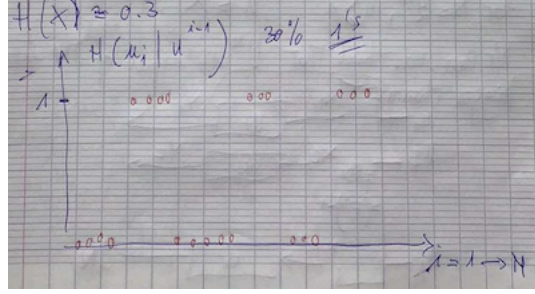 H(X) ≅ 0.3
H(u_i | u^{i-1}) 30% 1's
1
i = 1 → N